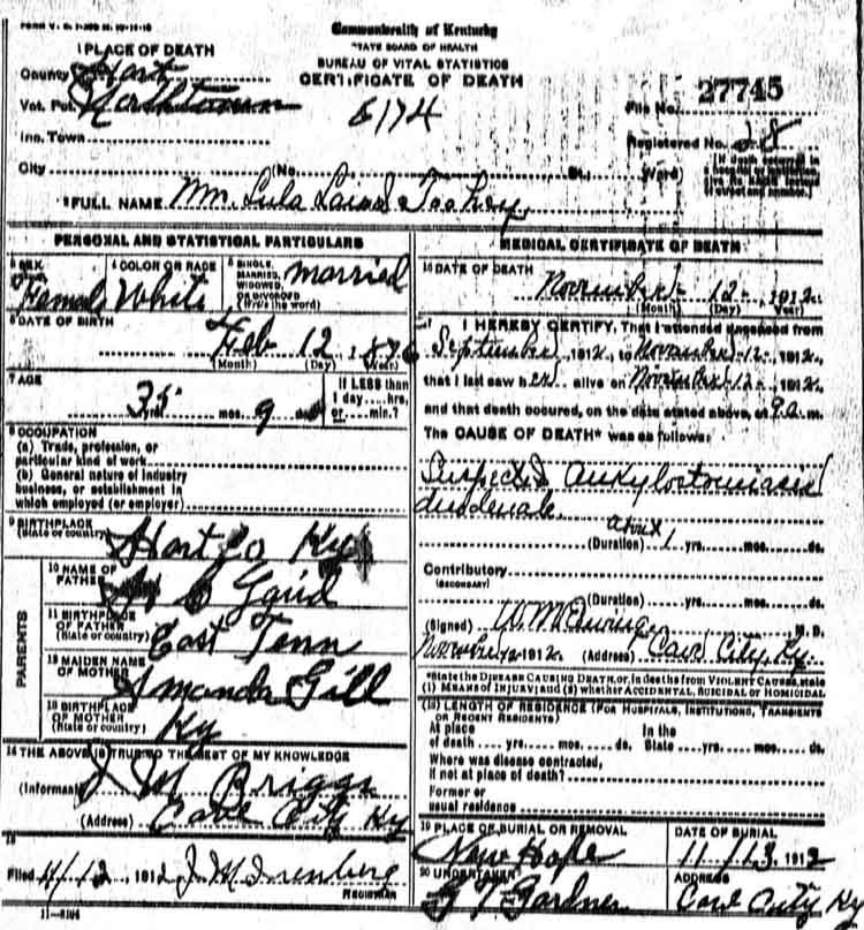 Commonwealth of Kentucky
STATE BOARD OF HEALTH
BUREAU OF VITAL STATISTICS
CERTIFICATE OF DEATH
1 PLACE OF DEATH
County Hart
Vot. Pct. Northtown
Inc. Town
City (No. St. Ward)
6174
File No. 27745
Registered No. 28
2 FULL NAME Mrs. Lula
PERSONAL AND STATISTICAL PARTICULARS
3 SEX Female
4 COLOR OR RACE White
5 SINGLE, MARRIED, WIDOWED, OR DIVORCED (Write the word) married
6 DATE OF BIRTH
Feb 12, 1876
(Month) (Day) (Year)
7 AGE
35 mos. 9 ds
If LESS than 1 day hrs, or min.?
8 OCCUPATION
(a) Trade, profession, or
particular kind of work
(b) General nature of Industry
business, or establishment in
which employed (or employer)
9 BIRTHPLACE
(State or country) Hart Co Ky
PARENTS
10 NAME OF FATHER
11 BIRTHPLACE OF FATHER
(State or country) East Tenn
12 MAIDEN NAME OF MOTHER Amanda Gill
13 BIRTHPLACE OF MOTHER
(State or country) Ky
14 THE ABOVE IS TRUE TO THE BEST OF MY KNOWLEDGE
(Informant) J M Briggs
(Address) Cave City Ky
15
Filed 11/12, 1912 J. M.
REGISTRAR
11-3184
MEDICAL CERTIFICATE OF DEATH
16 DATE OF DEATH
November 12, 1912
(Month) (Day) (Year)
17 I HEREBY CERTIFY, That I attended deceased from
September, 1912, to November 12, 1912,
that I last saw her alive on November 12, 1912,
and that death occured, on the date stated above, at 9 a. m.
The CAUSE OF DEATH* was as follows:
Suspected Ankylostomiasis
duodenale.
(Duration) about 1 yrs. mos. ds.
Contributory
(SECONDARY)
(Duration) yrs. mos. ds.
(Signed) W. M. M. D.
November 12 1912. (Address) Cave City, Ky.
*State the DISEASE CAUSING DEATH, or, in deaths from VIOLENT CAUSES, state
(1) MEANS OF INJURY; and (2) whether ACCIDENTAL, SUICIDAL or HOMICIDAL
(18) LENGTH OF RESIDENCE (FOR HOSPITALS, INSTITUTIONS, TRANSIENTS
OR RECENT RESIDENTS)
At place of death yrs. mos. ds. In the State yrs. mos. ds.
Where was disease contracted,
if not at place of death?
Former or
usual residence
19 PLACE OF BURIAL OR REMOVAL
New Hope
DATE OF BURIAL
11/13, 1912
20 UNDERTAKER
G T Gardner
ADDRESS
Cave City Ky